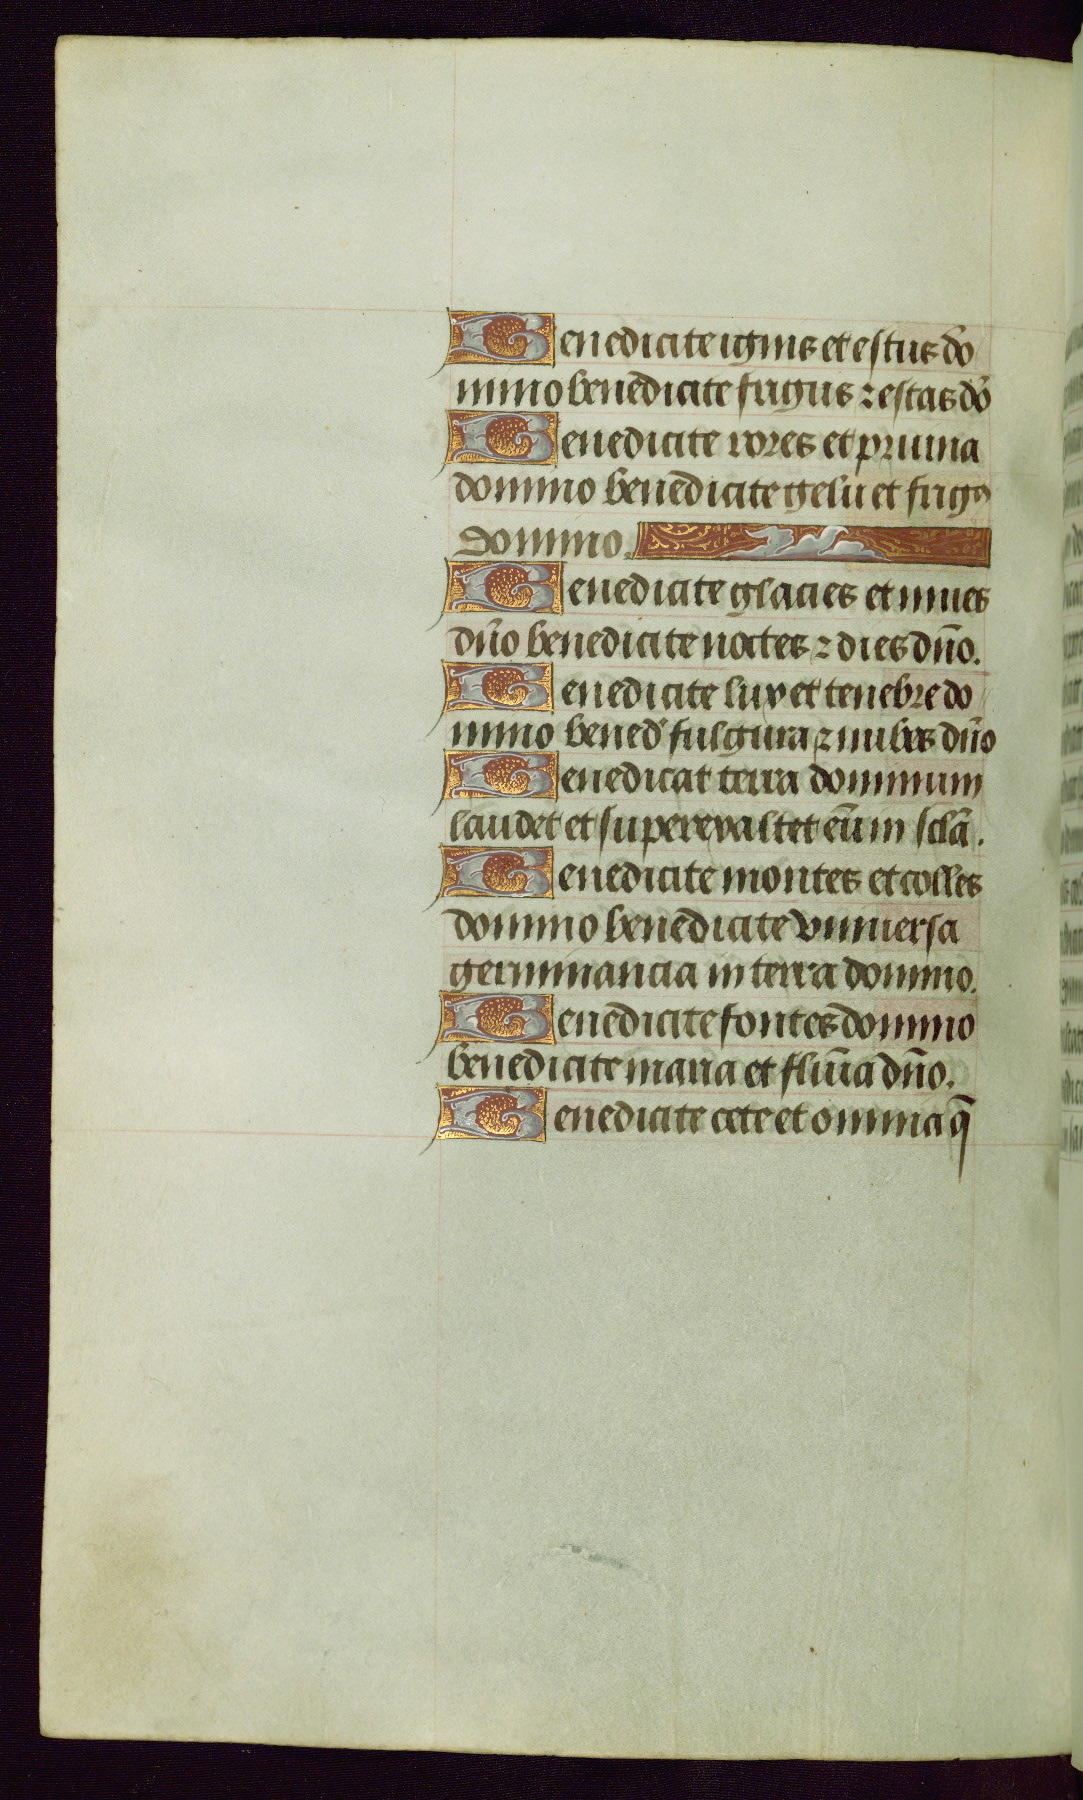 Benedicite ignis et estus do
mino benedicite frigus ⁊ estas dō
Benedicite rores et pruina
domino benedicite gelu et frigꝰ
domino.
Benedicite glacies et niues
dn̄o benedicite noctes ⁊ dies dn̄o.
Benedicite lux et tenebre do
mino bened' fulgura ⁊ nubes dn̄o
Benedicat terra dominum
laudet et superexaltet eū in sclā.
Benedicite montes et colles
domino benedicite vniuersa
germinancia in terra domino.
Benedicite fontes domino
benedicite maria et flūia dn̄o.
Benedicite cete et omnia q̄